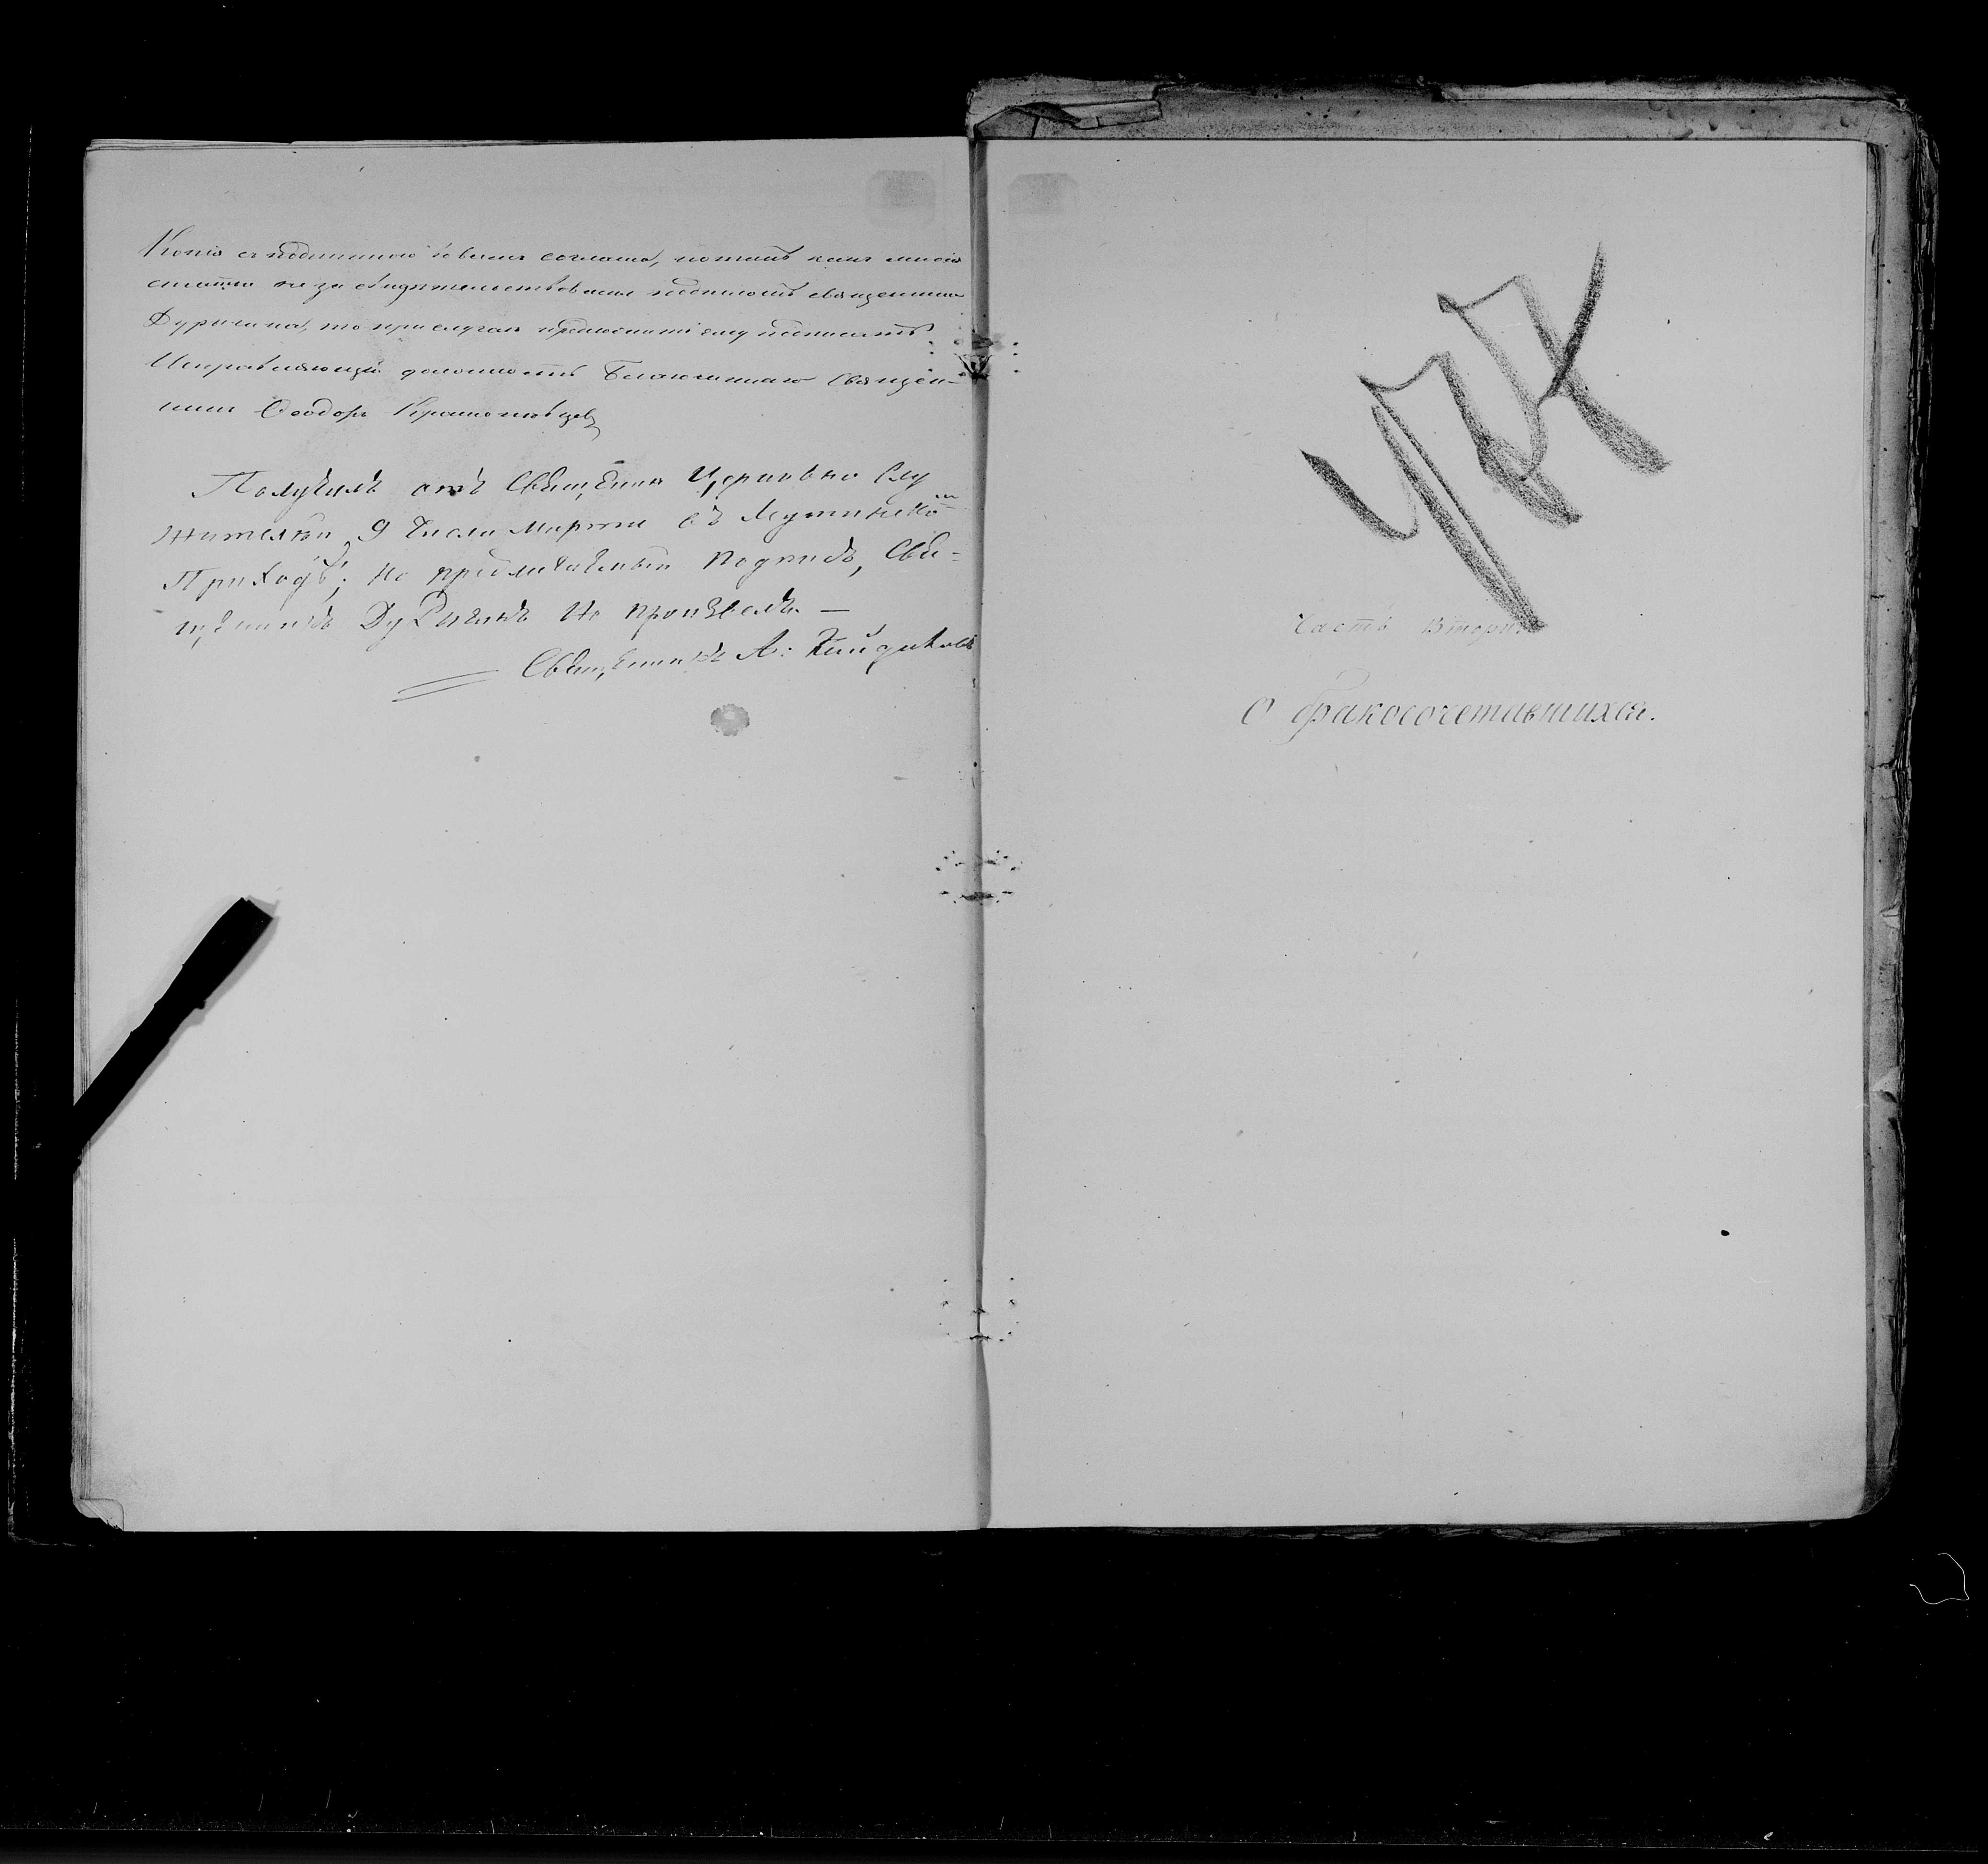 Копія съ подлинною во всемъ согласна, но такъ какъ многія
статьи не засвидѣтельствованы подписомъ священника
Дурыгина, то при случаѣ предложить ему подписать.
Исправляющій должность Благочиннаго Священ-
никъ Ѳеодоръ
Получилъ отъ Священно Церковно Слу
жителей 9 числа Марта въ
Приходѣ; но предписанный подписъ, Свя-
щенникъ Дурыгинъ не произвелъ. —
Священникъ А:
Часть Вторая
О бракосочетавшихся.